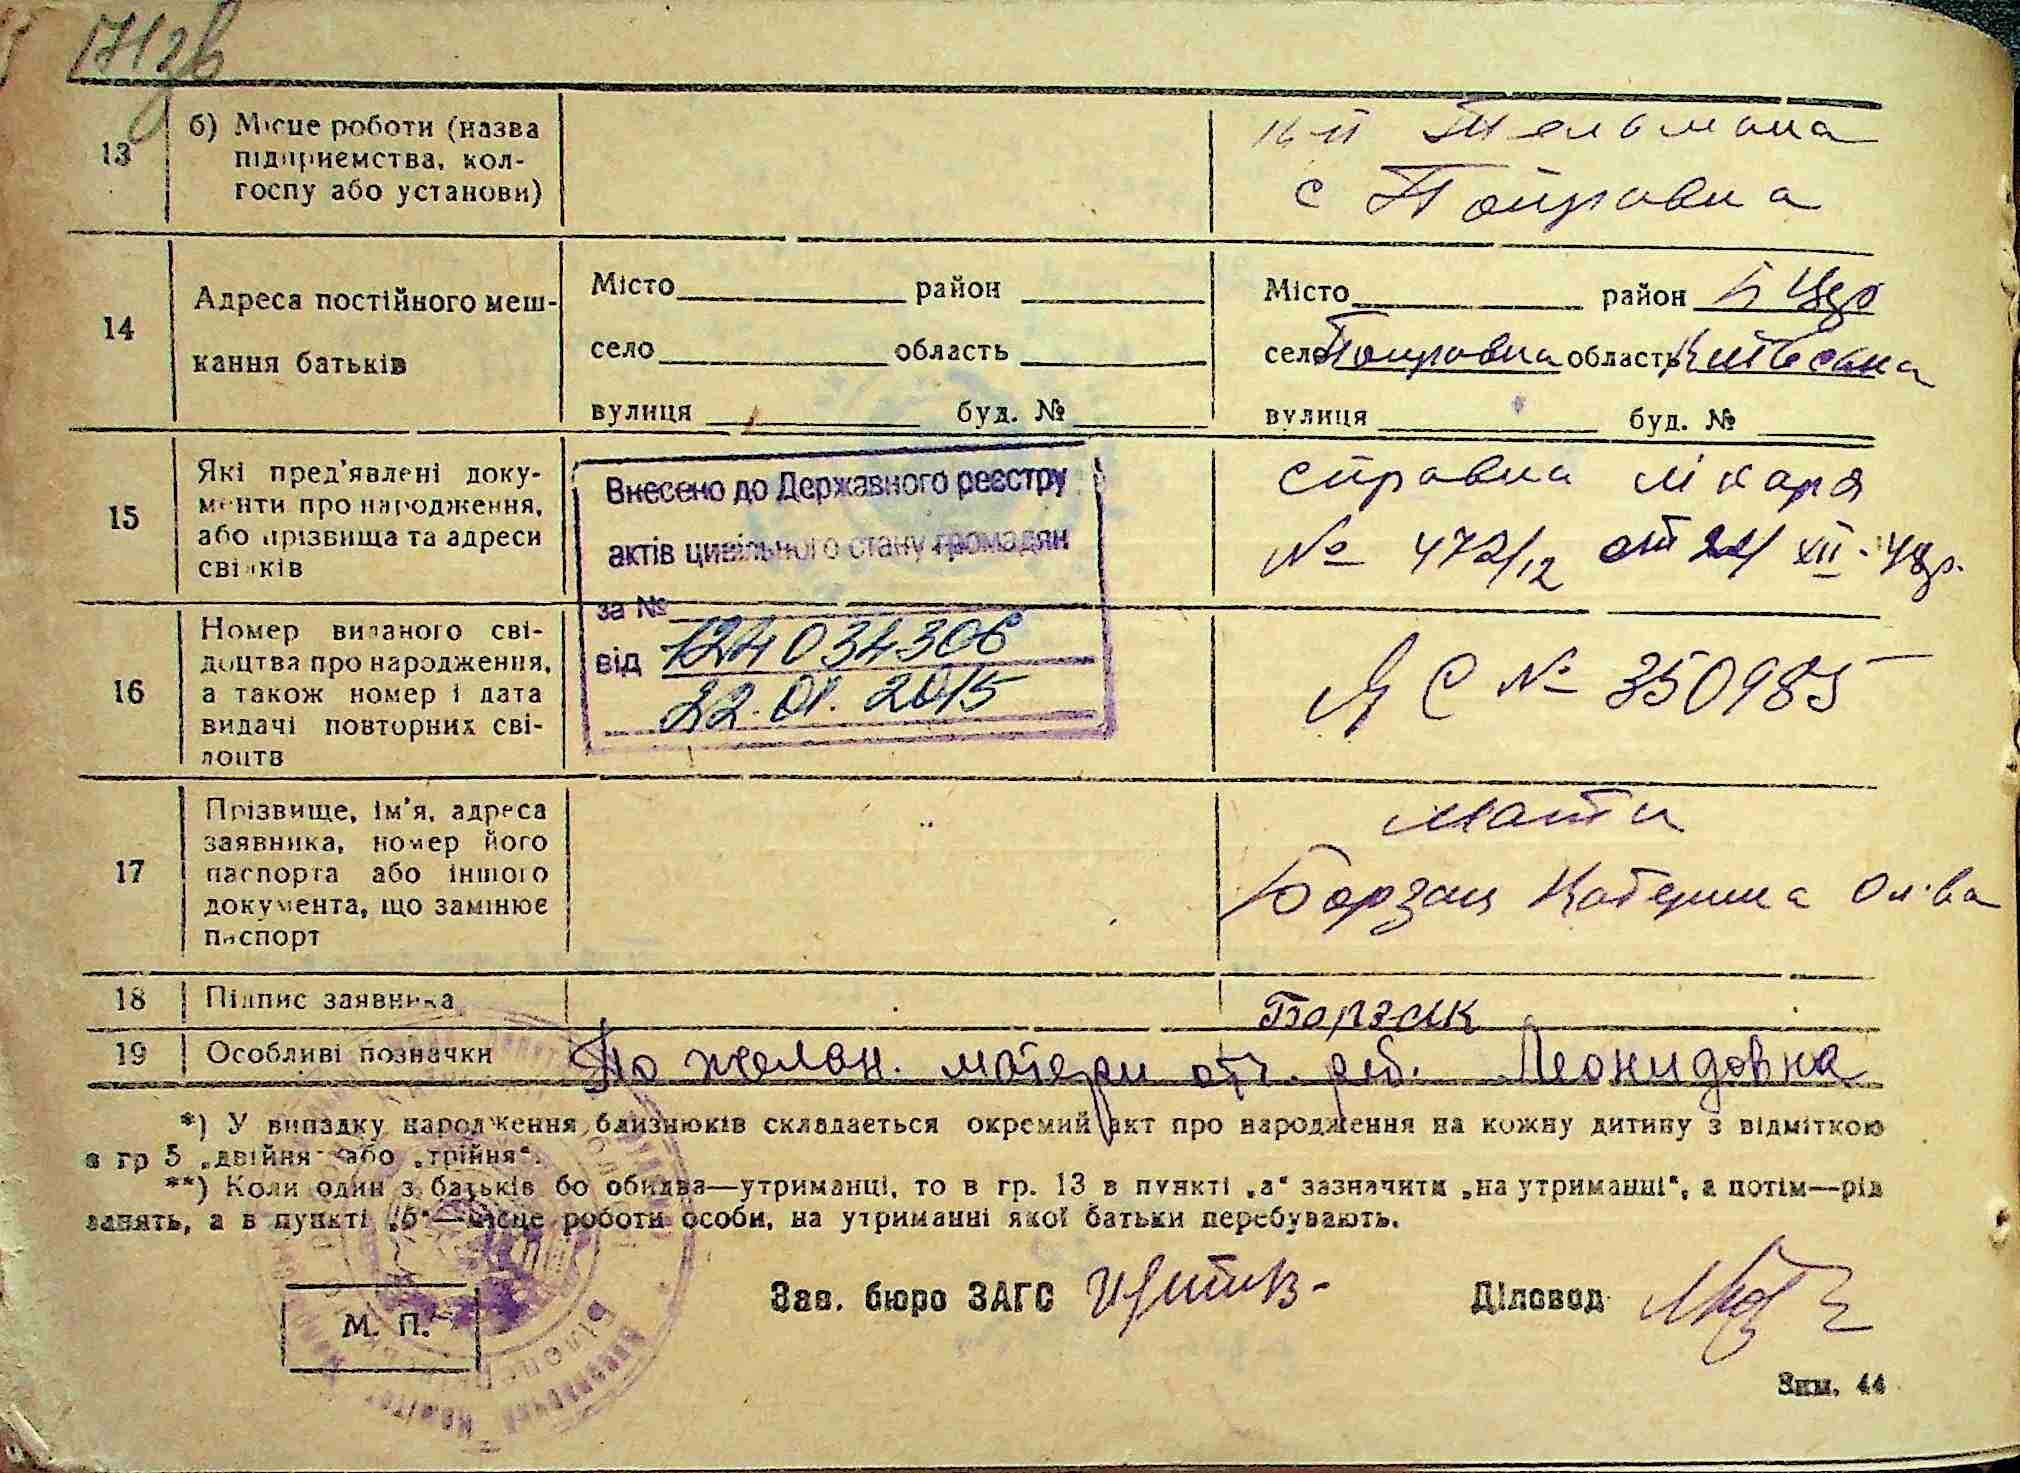 171зв
13 б) Місце роботи (назва
підприємства, кол-
госпу або установи)
к-п Тельмана
с Покровка
14 Адреса постійного меш-
кання батьків
Місто район
село область
вулиця буд. №
Місто район Б Цер
село Покровка область Київська
вулиця буд. №
15 Які пред'явлені доку-
менти про народження,
або прізвища та адреси
свідків
справка лікаря
№ 472/12 от 24 XII-48р.
Внесено до Державного реєстру
актів цивільного стану громадян
за №
124034306
від
22.01.2015
16 Номер виданого сві-
доцтва про народження,
а також номер і дата
видачі повторних сві-
доцтв
ЯС № 350985
17 Прізвище, ім'я, адреса
заявника, номер його
паспорта або іншого
документа, що замінює
паспорт
мати
Борзак Катерина Ол-ва
18 Підпис заявника Борзак
19 Особливі позначки По желан. матери отч. реб. Леонидовна
*) У випадку народження близнюків складається окремий акт про народження на кожну дитину з відміткою
в гр 5 „двійня" або „трійня".
**) Коли один з батьків бо обидва—утриманці, то в гр. 13 в пункті „а" зазначити „на утриманні", а потім—рід
занять, а в пункті „б"—місце роботи особи, на утриманні якої батьки перебувають.
М. П.
Зав. бюро ЗАГС
Діловод
Зам. 44